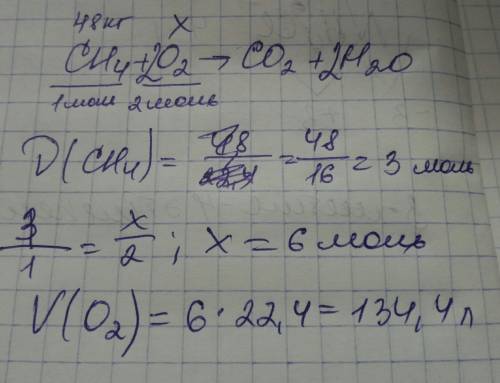 48кг x
CH4+2O2→CO2+2H2O
1моль 2 моль
D(CH4)=48/=48/16=3 моль
3/1=x/2; x=6 моль
V(O2)=6·22,4=134,4л